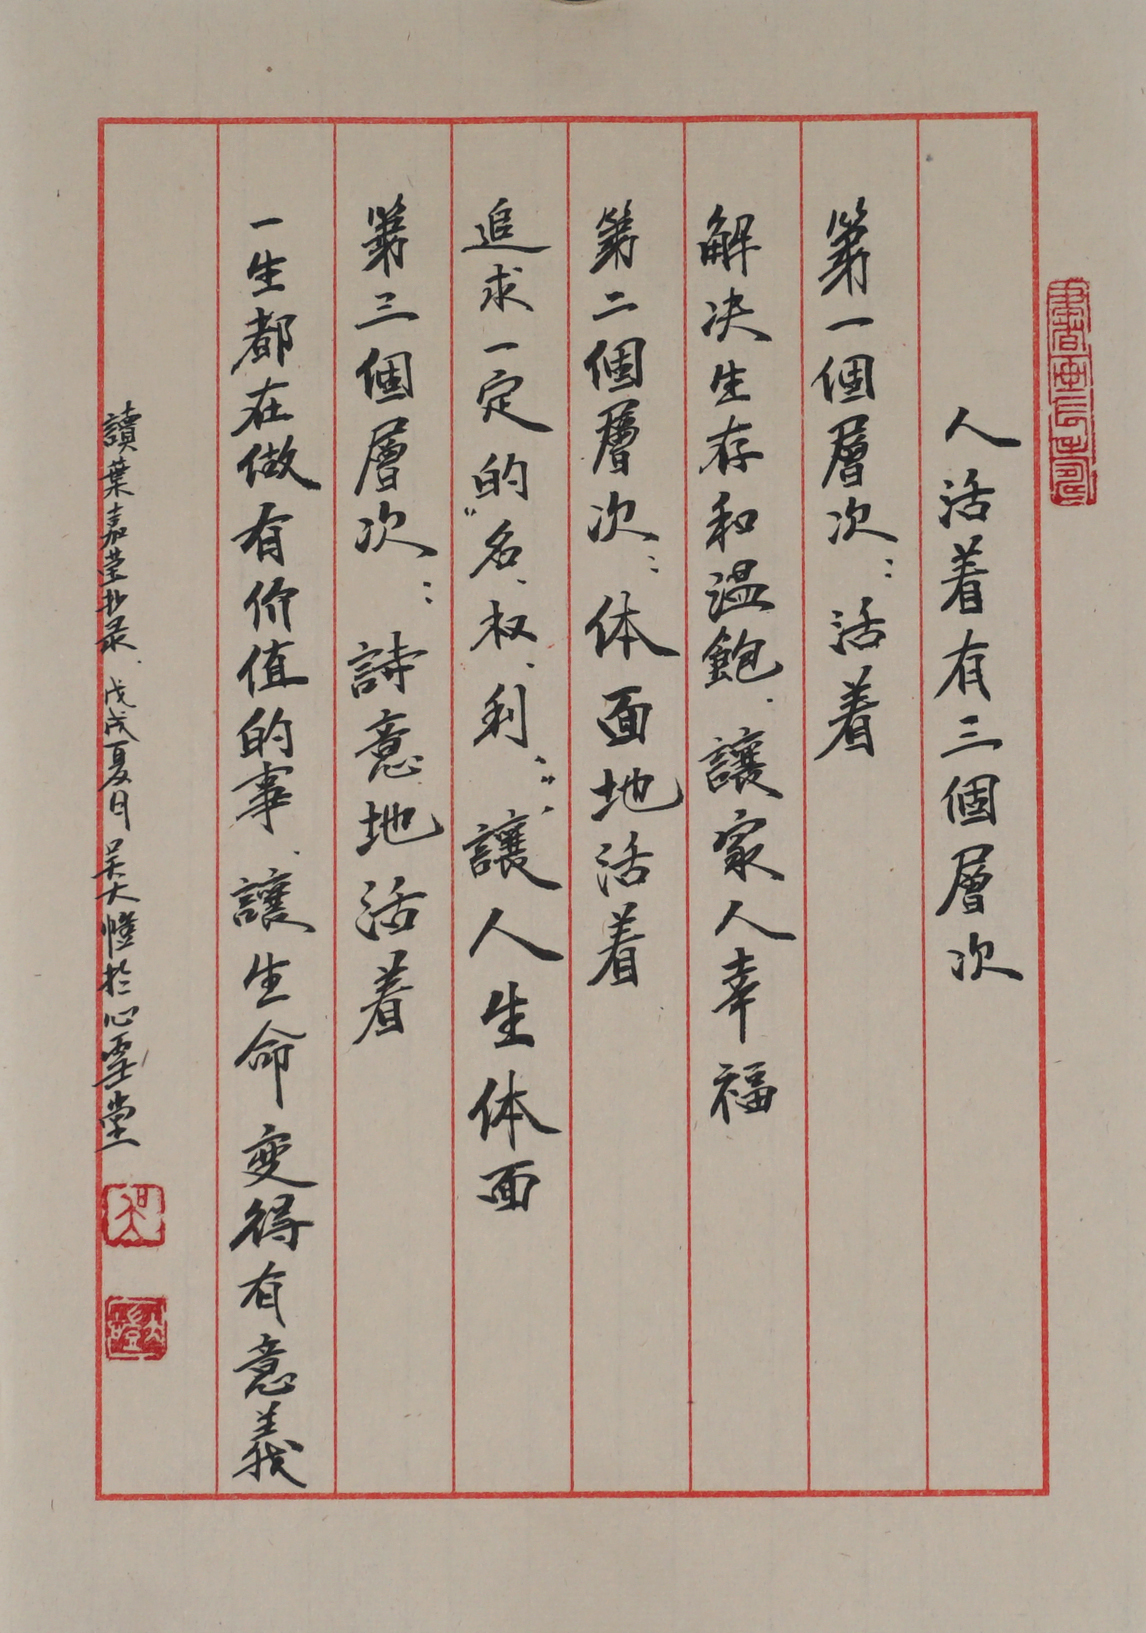 人活着有三個層次
第一個層次：活着
解决生存和温飽、讓家人幸福
第二個層次：体面地活着
追求一定的“名、权、利、”、讓人生体面
第三個層次：詩意地活着
一生都在做有价值的事、讓生命变得有意義
讀葉嘉莹抄录、戊戌夏日吴大愷於心雲堂